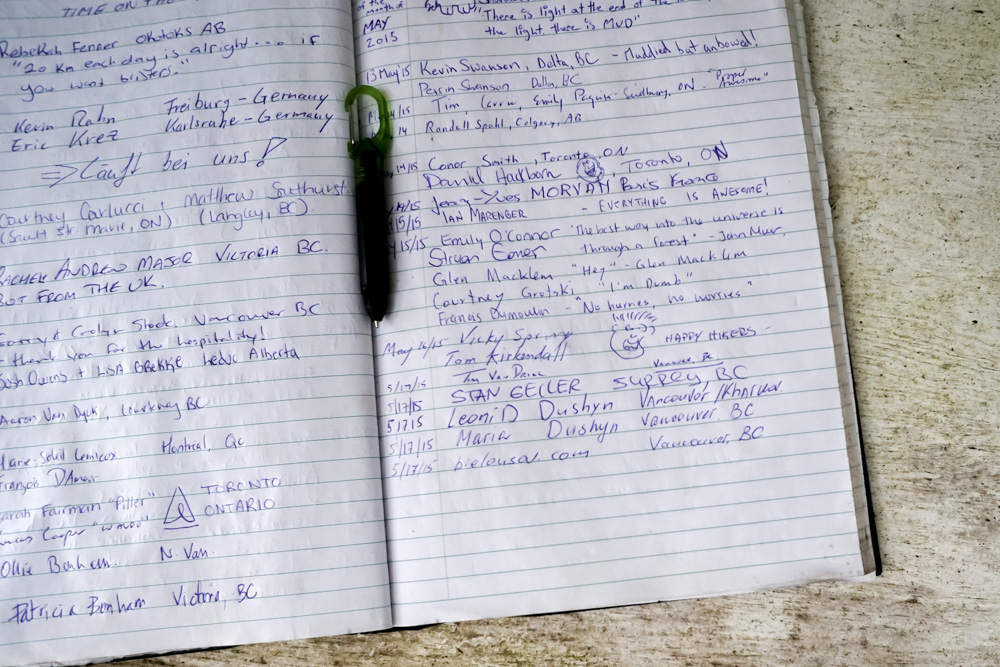 TIME ON THE
Rebekah Fenner OKOTOKS AB
"20 Km each day is alright... if
you want blisters."
Kevin Rahn Freiburg - Germany
Eric Krez Karlsruhe - Germany
⇒ Läuft bei uns!
Courtney Carlucci, Matthew Southurst
(Sault Ste Marie, ON) (Langley, BC)
RACHEL ANDREW MAJOR VICTORIA BC.
BUT FROM THE UK.
Carolyn Vancouver BC
thank you for the hospitality!
Owens + LISA BREKKE Leduc Alberta
Aaron Van Dyck, Courtenay BC
Montréal, Qc
François D'Amour
Sarah Fairman "Pitter" TORONTO
Cooper ONTARIO
Ollie Bonham N. Van
Patricia Bonham Victoria, BC
MAY
2015
There is light at the end of the
the light, there is MUD"
13 May '15 Kevin Swanson, Delta, BC - Muddied but unbowed!
Swanson Delta, BC
Tim Emily ON
14 Randall Spohl, Calgary, AB
14/15 Conor Smith, Toronto, ON
Daniel Hackborn Toronto, ON
14/15 Jean-Yves MORVAN, Boris
15/15 IAN MARENGER - EVERYTHING IS AWESOME!
15/15 Emily O'Connor "The best way into the universe is
through a forest" - John Muir.
Glen Macklem "Hey" - Glen Macklem
Courtney "I'm Dumb"
Francis Dumoulin - "No hurries, no worries"
May 16/15 Vicky
Tom Kirkendall HAPPY HIKERS -
Tim Van
Vancouver, Bc
5/17/15 STAN GELLER SUPPLY BC
5/17/15 LeoniD Dushyn Vancouver / Kharkov
5/17/15 Maria Dushyn Vancouver BC
5/17/15 bielousov.com Vancouver, BC